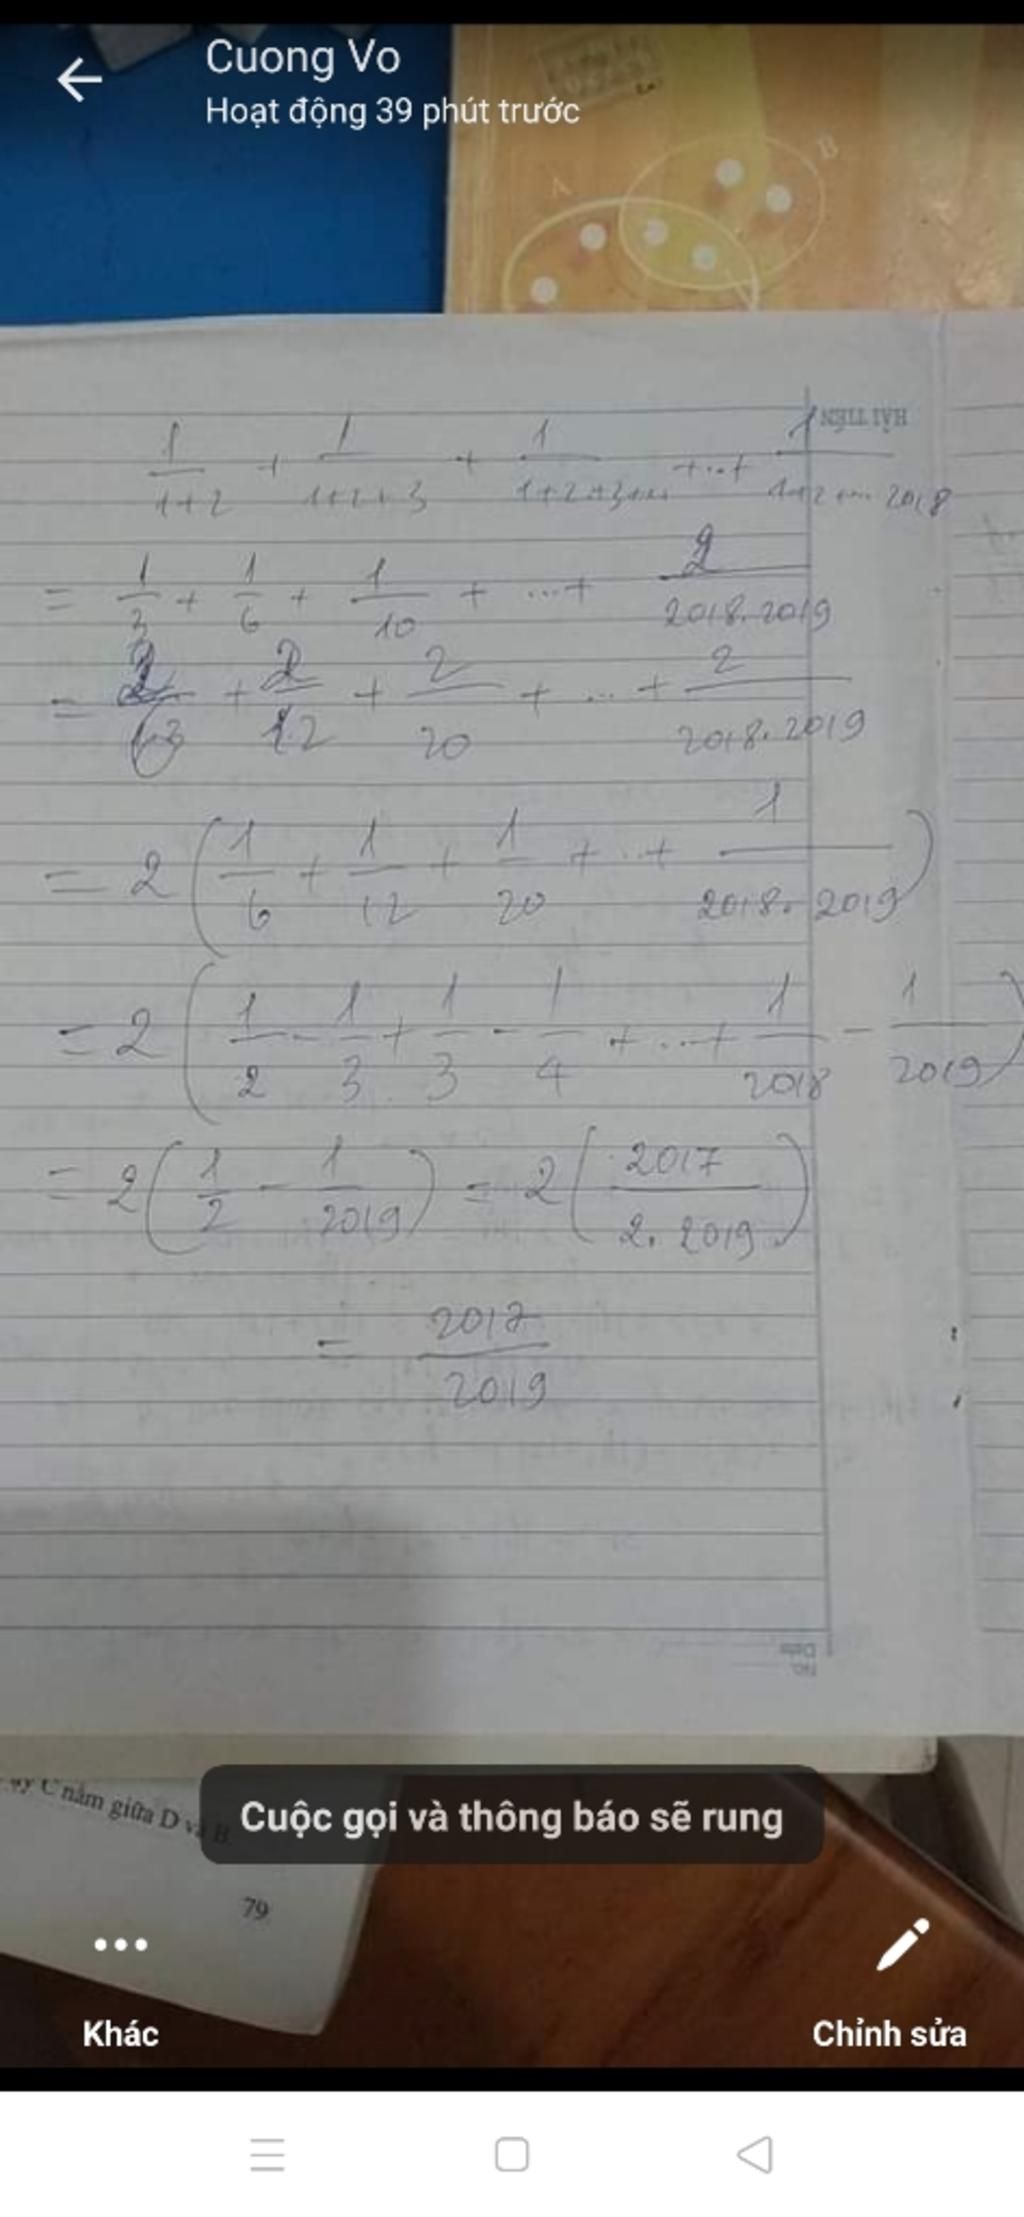 Cuong Vo
Hoạt động 39 phút trước
A
B
HẢI TIẾN
1/(1+2) + 1/(1+2+3) + 1/(1+2+3+...) + ... + 1/(1+2+... 2018
= 1/3 + 1/6 + 1/10 + ... + 2/(2018.2019)
= 2/6 + 2/12 + 2/20 + ... + 2/(2018.2019)
= 2 ( 1/6 + 1/12 + 1/20 + ... + 1/(2018.2019) )
= 2 ( 1/2 - 1/3 + 1/3 - 1/4 + ... + 1/2018 - 1/2019 )
= 2 ( 1/2 - 1/2019 ) = 2 ( 2017/(2.2019) )
= 2017/2019
No.
Date
C nằm giữa D và B
79
Cuộc gọi và thông báo sẽ rung
Khác
Chỉnh sửa